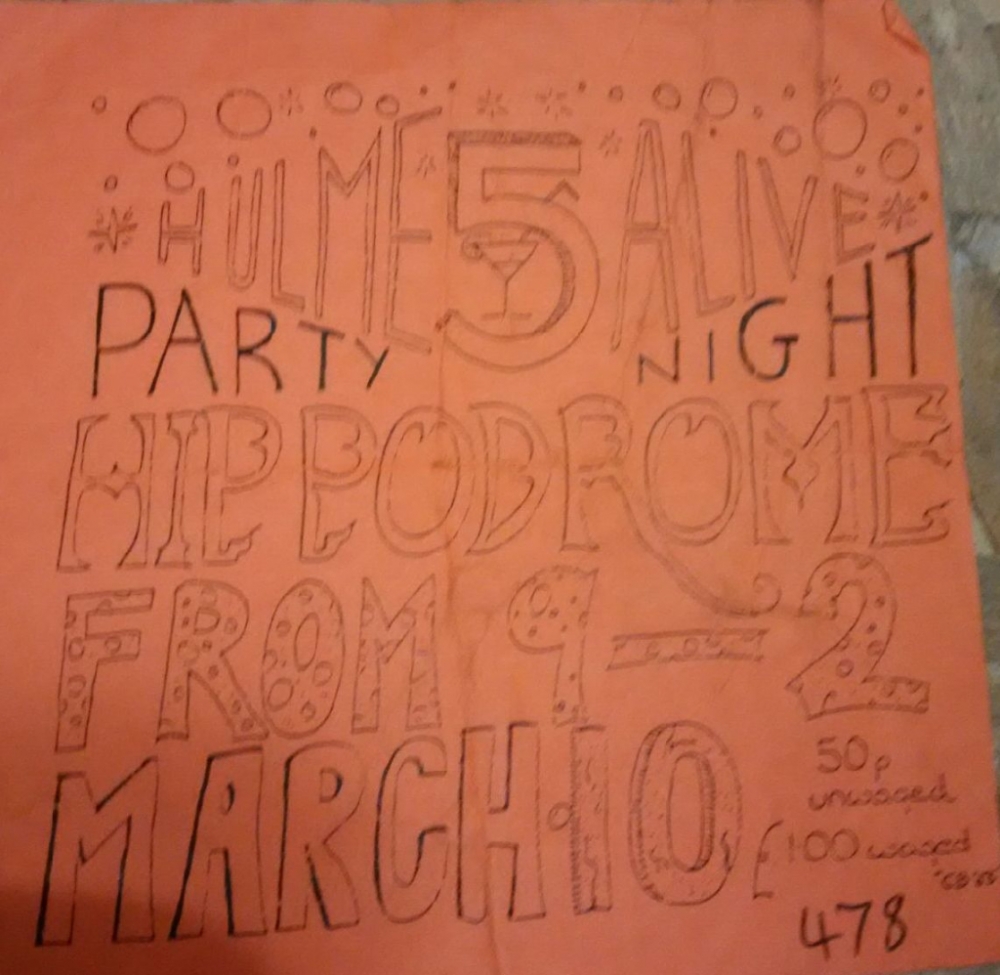 HULME 5 ALIVE
PARTY NIGHT
HIPPODROME
FROM 9-2
MARCH·10
50p
unwaged
£100 waged
478